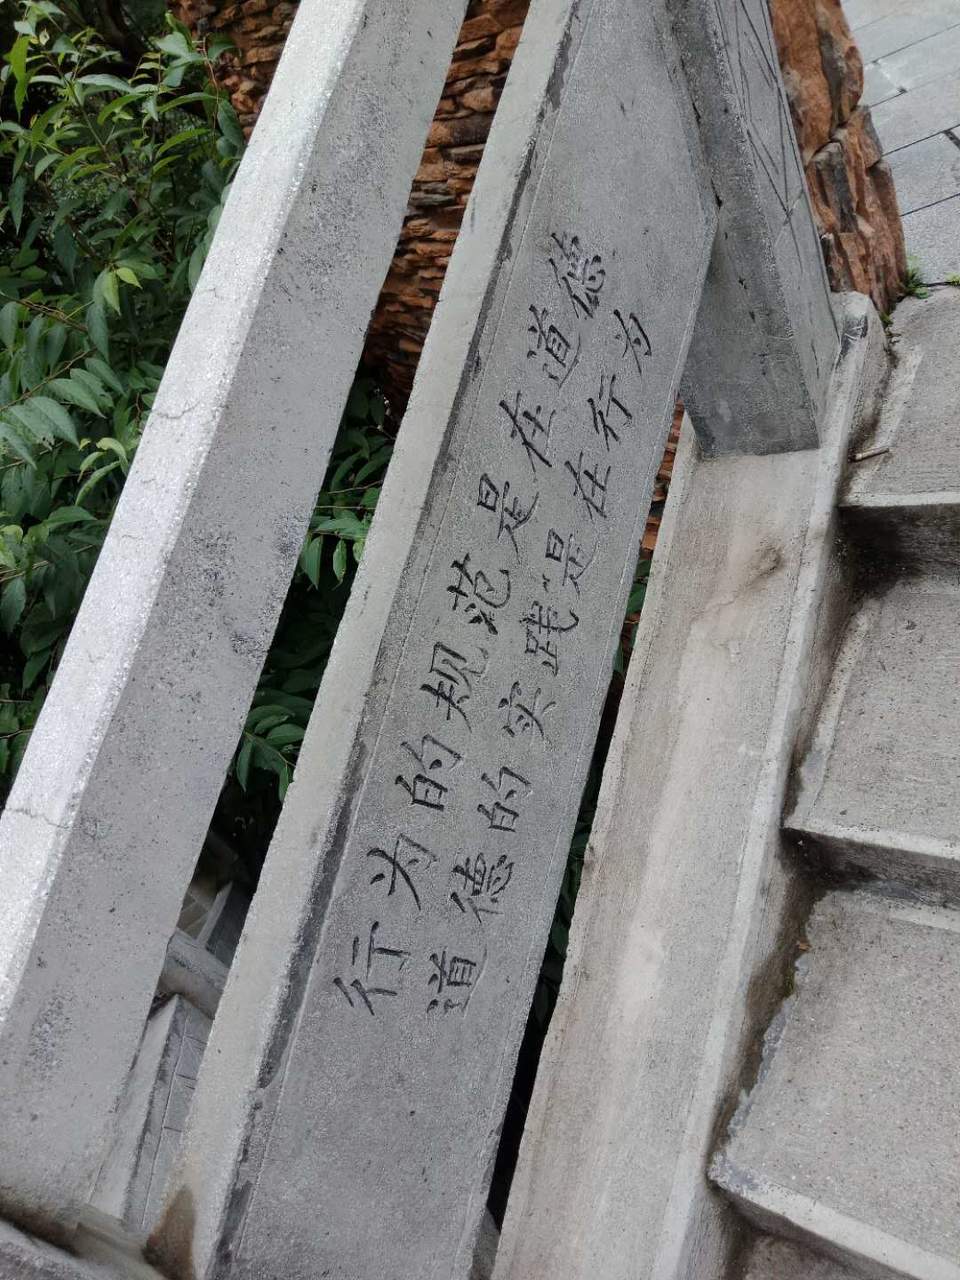 行为的规范是在道德
道德的实践是在行为